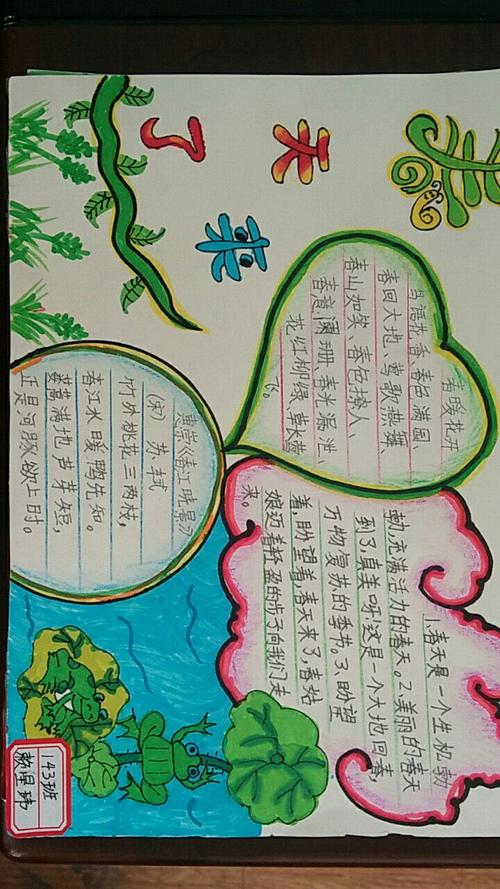 春天来了
春暖花开
鸟语花香、春色满园、
春回大地、莺歌燕舞、
春山如笑、春色撩人、
春意阑珊、春光漏泄、
花红柳绿、草长莺
飞。
1.春天是一个生机勃
勃,充满活力的春天。2.美丽的春天
到了真美呀!这是一个大地回春
万物复苏的季节。3、盼望
着,盼望着春天来了,春姑
娘迈着轻盈的步子向我们走
来。
惠崇《春江晚景》
(宋) 苏轼
竹外桃花三两枝,
春江水暖鸭先知。
蒌蒿满地芦芽短,
正是河豚欲上时。
143班